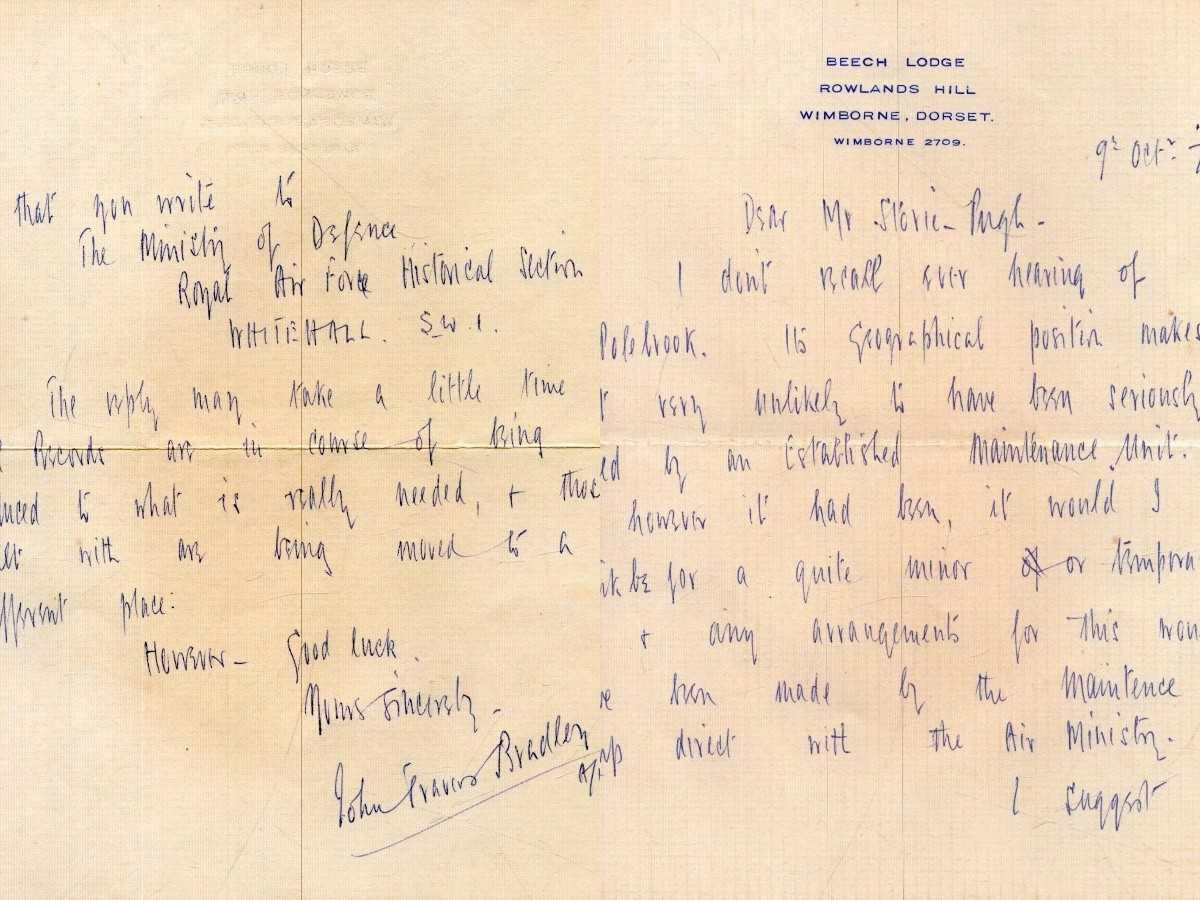 BEECH LODGE
ROWLANDS HILL
WIMBORNE, DORSET.
WIMBORNE 2709.
9th Octr
Dear Mr Storie-Pugh -
I don't recall ever hearing of
Polebrook. Its Geographical position makes
very unlikely to have been seriously
ed by an Established Maintenance Unit.
however it had been, it would I
be for a quite minor or tempora
+ any arrangements for this wou
been made by the Maintence
direct with the Air Ministry.
I suggest
that you write to
The Ministry of Defence
Royal Air Force Historical Section
WHITEHALL. S.W.1.
The reply may take a little time
Records are in course of being
duced to what is really needed, + those
with are being moved to a
fferent place:
However - Good luck.
Yours Sincerely -
John Travers Bradley